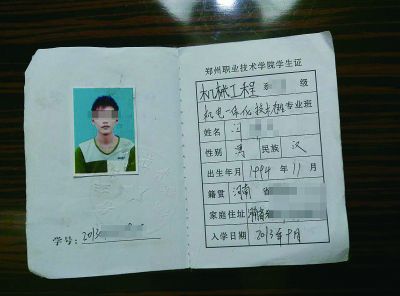 学号: 2013
郑州职业技术学院学生证
机械工程系 级
机电一体化技术 专业 班
姓名 闫
性别 男 民族 汉
出生年月 1994 年 11 月
籍贯 河南 省
家庭住址
入学日期 2013 年 9 月